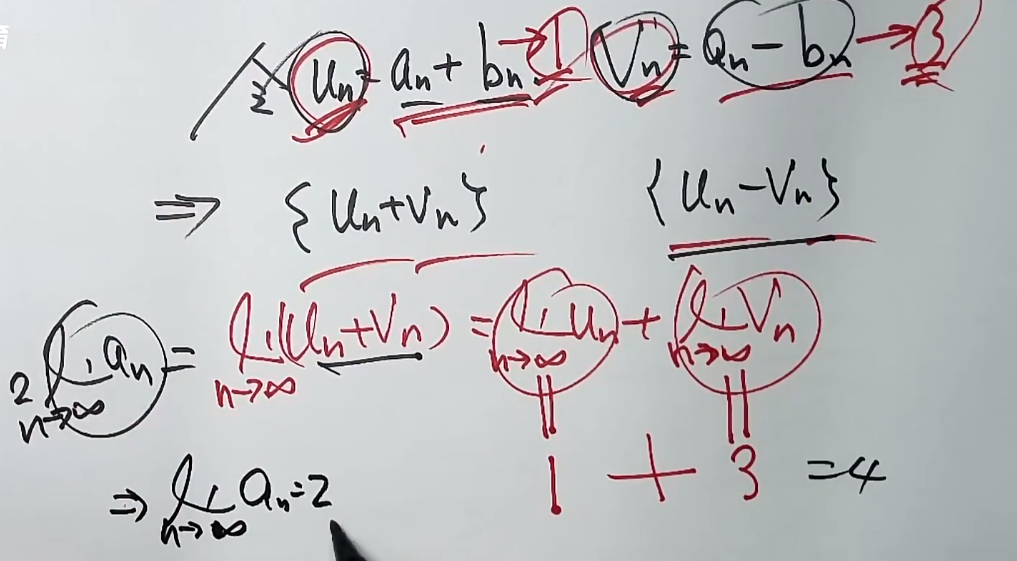 令 uₙ = aₙ + bₙ → 1 Vₙ = aₙ − bₙ → 3
⇒ {uₙ+Vₙ} {uₙ−Vₙ}
2 lim aₙ = lim (uₙ+Vₙ) = lim uₙ + lim Vₙ
n→∞ n→∞ n→∞ n→∞
|| ||
1 + 3 = 4
⇒ lim aₙ = 2
n→∞